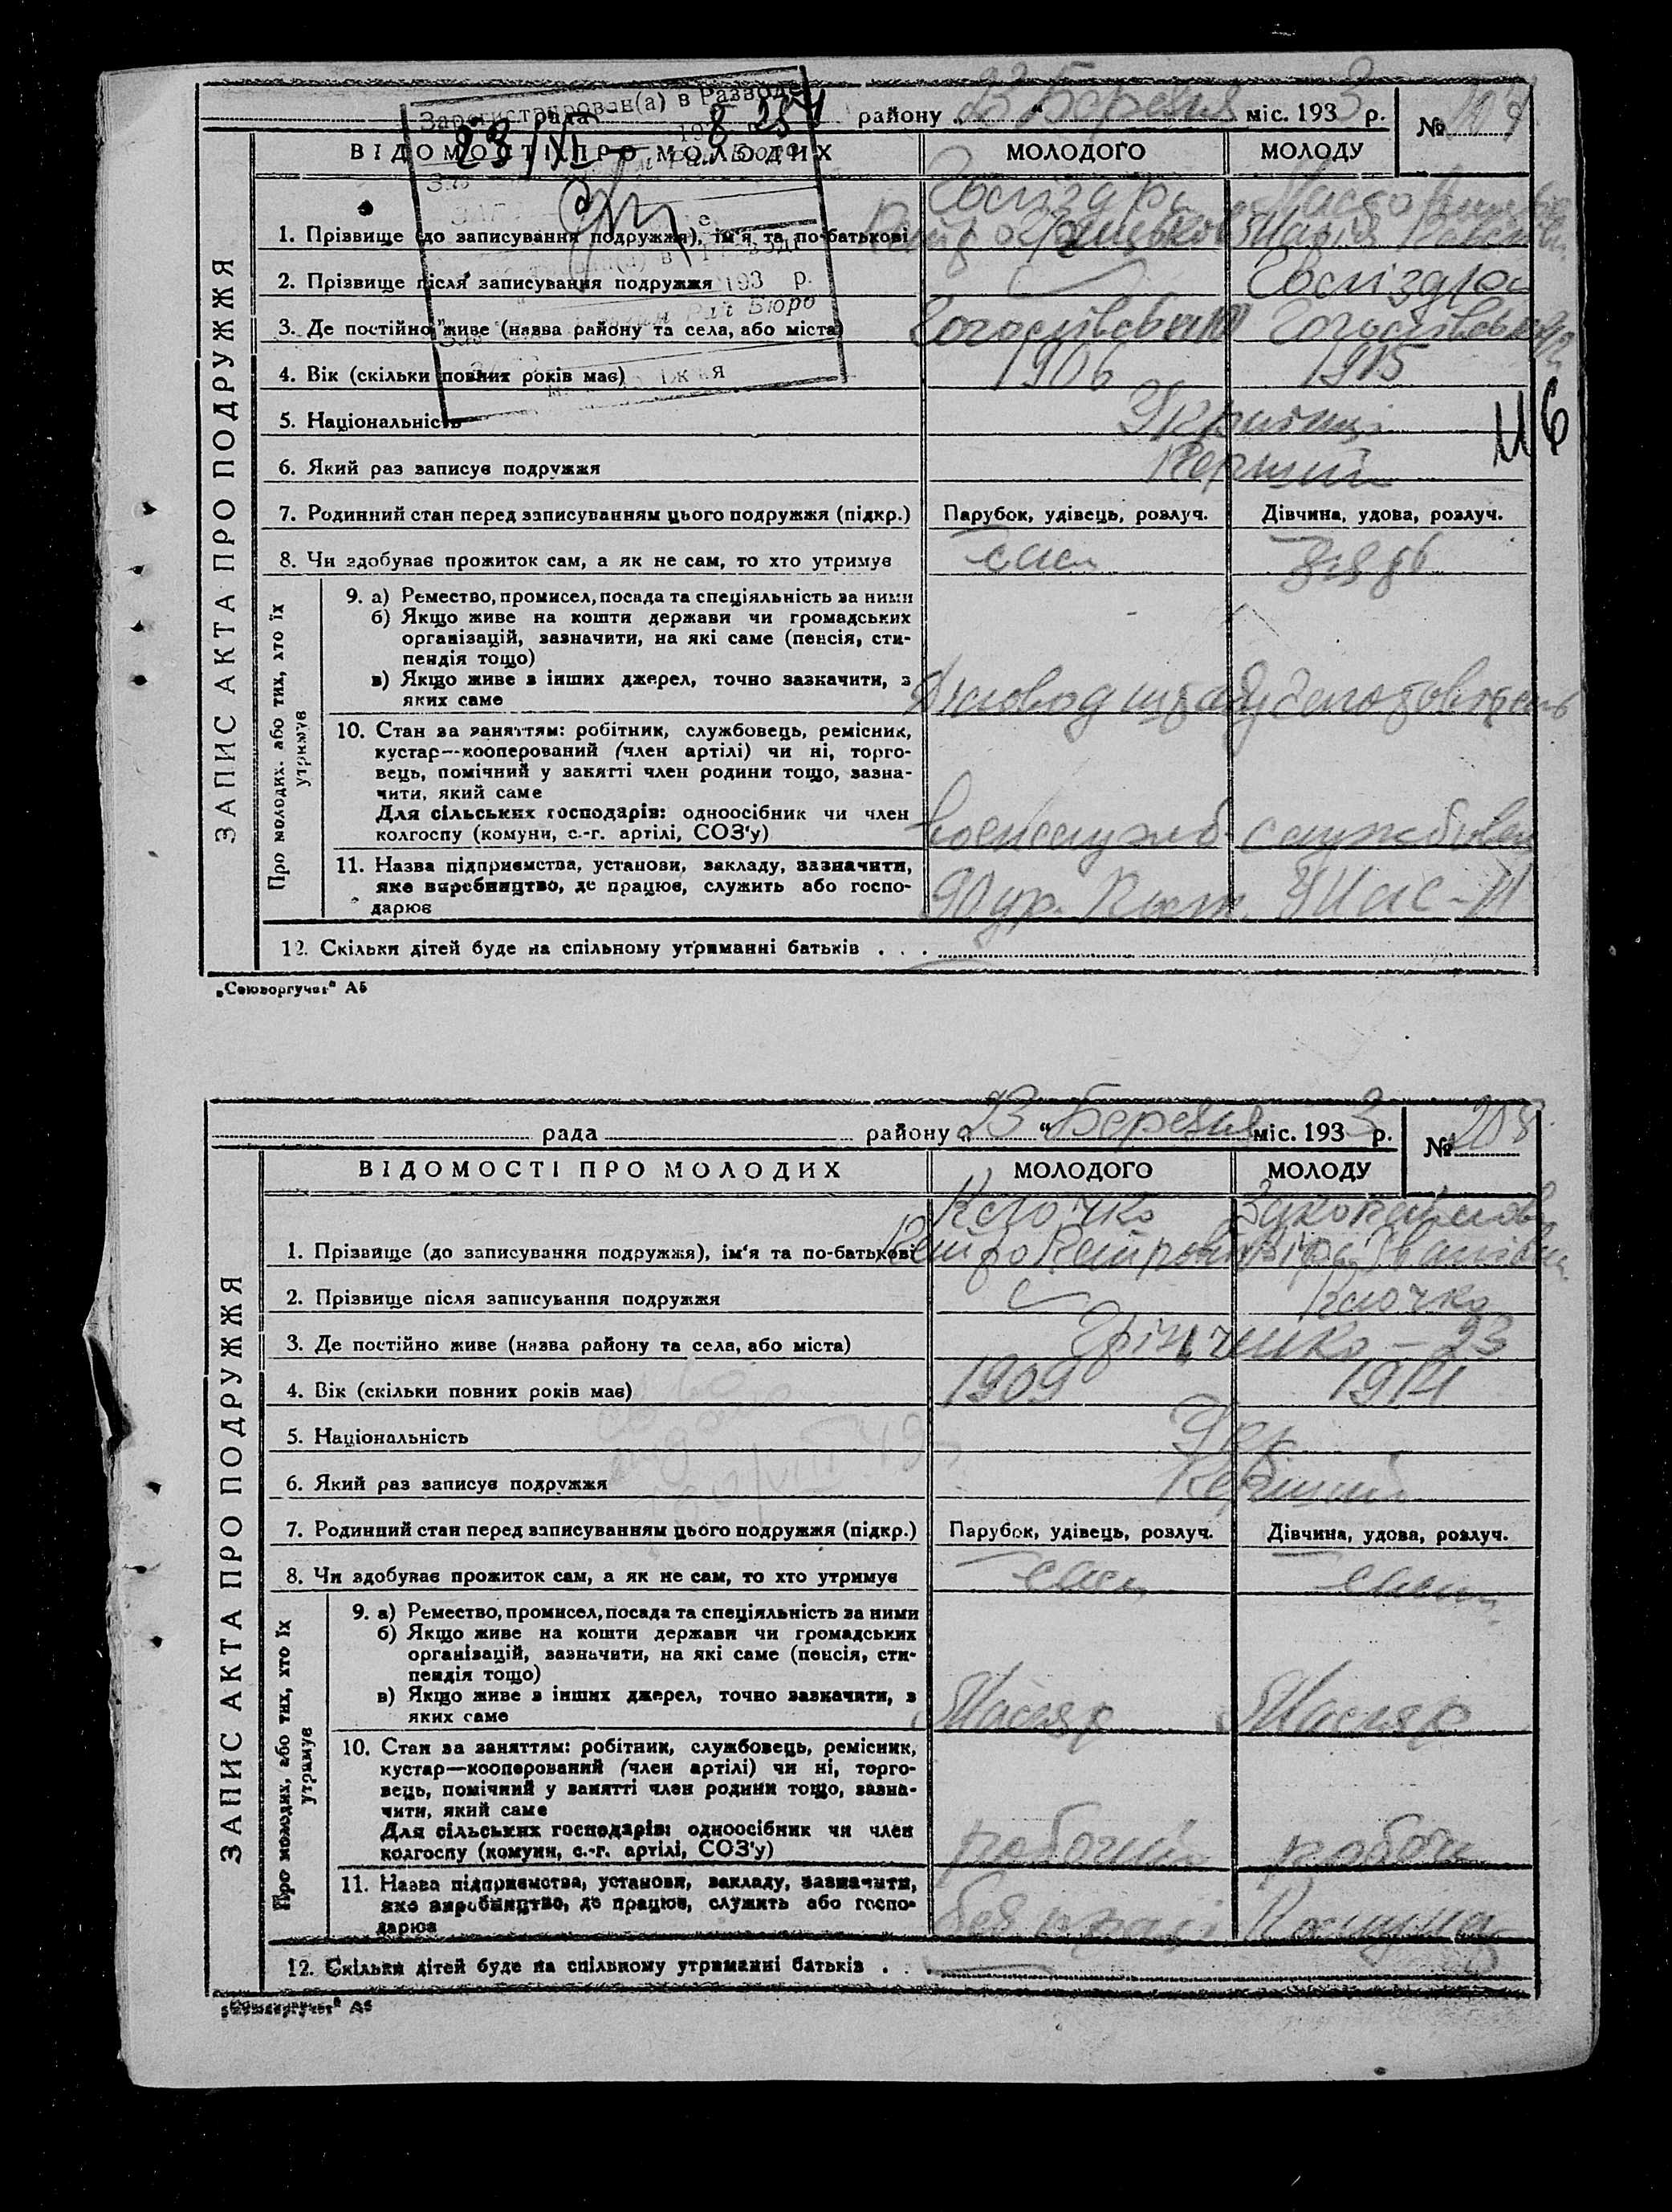 Зарегистрирован(а) в Разводе
23/XI 8
району „ 23 " Березня міс. 193 3 р. № 207
ВІДОМОСТІ ПРО МОЛОДИХ МОЛОДОГО МОЛОДУ
ЗАПИС АКТА ПРО ПОДРУЖЖЯ
1. Прізвище (до записування подружжя), ім'я та по-батькові
2. Прізвище після записування подружжя
193 р.
Бюро
3. Де постійно живе (назва району та села, або міста)
4. Вік (скільки повних років має) 1906 1915
5. Національність Українці
116
6. Який раз записує подружжя Перший
7. Родинний стан перед записуванням цього подружжя (підкр.) Парубок, удівець, розлуч. Дівчина, удова, розлуч.
8. Чи здобував прожиток сам, а як не сам, то хто утримує сам
Про молодих, або тих, хто їх утримує
9. а) Ремество, промисел, посада та спеціяльність за ними
б) Якщо живе на кошти держави чи громадських
організацій, зазначити, на які саме (пенсія, сти-
пендія тощо)
в) Якщо живе з інших джерел, точно зазначити, з
яких саме
10. Стан за заняттям: робітник, службовець, ремісник,
кустар—кооперований (член артілі) чи ні, торго-
вець, помічний у занятті член родини тощо, зазна-
чити, який саме
Для сільських господарів: одноосібник чи член
колгоспу (комуни, с.-г. артілі, СОЗ'у) военнослужб службовец
11. Назва підприємства, установи, закладу, зазначити,
яке виробництво, де працює, служить або госпо-
дарює
12. Скільки дітей буде на спільному утриманні батьків . . .
„Союзоргучет" А5
рада району „ 23 " Березня міс. 193 3 р. № 208
ВІДОМОСТІ ПРО МОЛОДИХ МОЛОДОГО МОЛОДУ
ЗАПИС АКТА ПРО ПОДРУЖЖЯ
Клочко
1. Прізвище (до записування подружжя), ім'я та по-батькові Петро Петрович Віра Іванівна
2. Прізвище після записування подружжя Клочко
3. Де постійно живе (назва району та села, або міста)
4. Вік (скільки повних років має) 1909 1914
5. Національність Укр
6. Який раз записує подружжя Перший
7. Родинний стан перед записуванням цього подружжя (підкр.) Парубок, удівець, розлуч. Дівчина, удова, розлуч.
8. Чи здобував прожиток сам, а як не сам, то хто утримує сам сам
Про молодих, або тих, хто їх утримує
9. а) Ремество, промисел, посада та спеціяльність за ними
б) Якщо живе на кошти держави чи громадських
організацій, зазначити, на які саме (пенсія, сти-
пендія тощо)
в) Якщо живе з інших джерел, точно зазначити, з
яких саме Маляр Маляр
10. Стан за заняттям: робітник, службовець, ремісник,
кустар—кооперований (член артілі) чи ні, торго-
вець, помічний у занятті член родини тощо, зазна-
чити, який саме
Для сільських господарів: одноосібник чи член
колгоспу (комуни, с.-г. артілі, СОЗ'у) робочий
11. Назва підприємства, установи, закладу, зазначити,
яке виробництво, де працює, служить або госпо-
дарює без праці
12. Скільки дітей буде на спільному утриманні батьків . . .
„Союзоргучет" А5